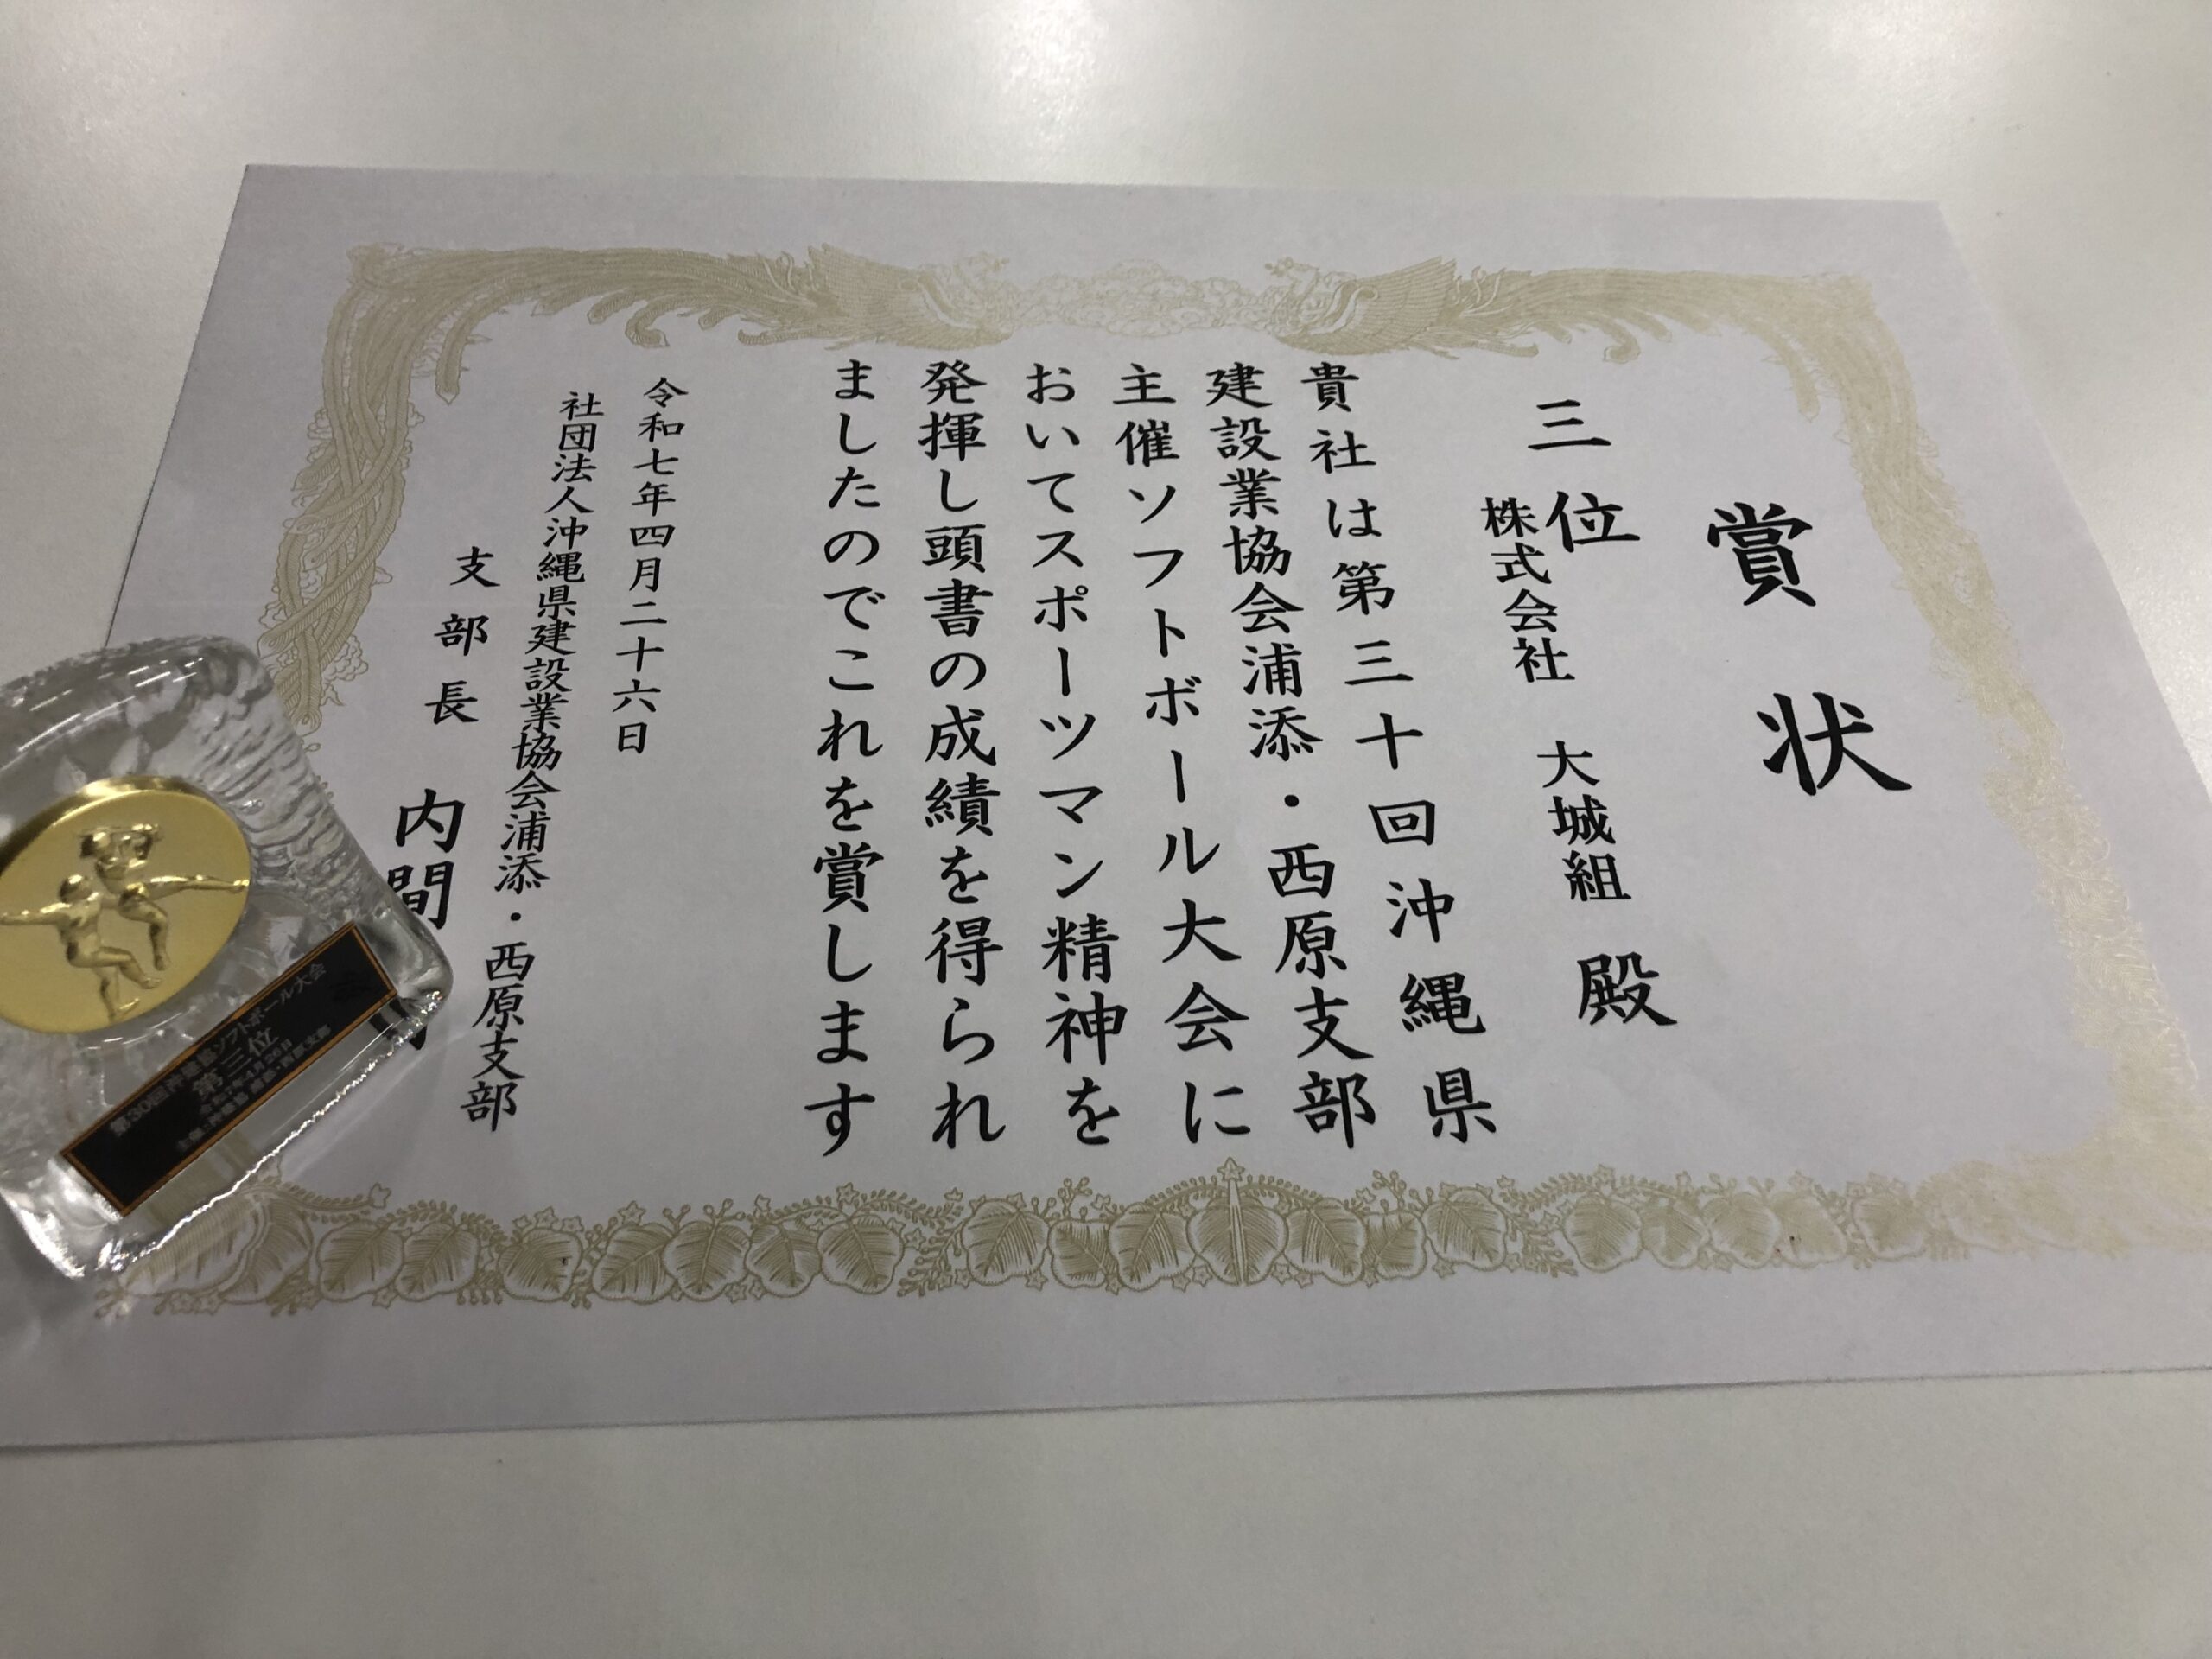 賞状
三位
株式会社 大城組 殿
貴社は第三十回沖縄県
建設業協会浦添・西原支部
主催ソフトボール大会に
おいてスポーツマン精神を
発揮し頭書の成績を得られ
ましたのでこれを賞します
令和七年四月二十六日
社団法人沖縄県建設業協会浦添・西原支部
支部長 内間
第30回沖建協ソフトボール大会
第三位
令和7年4月26日
主催:沖建協 浦添・西原支部